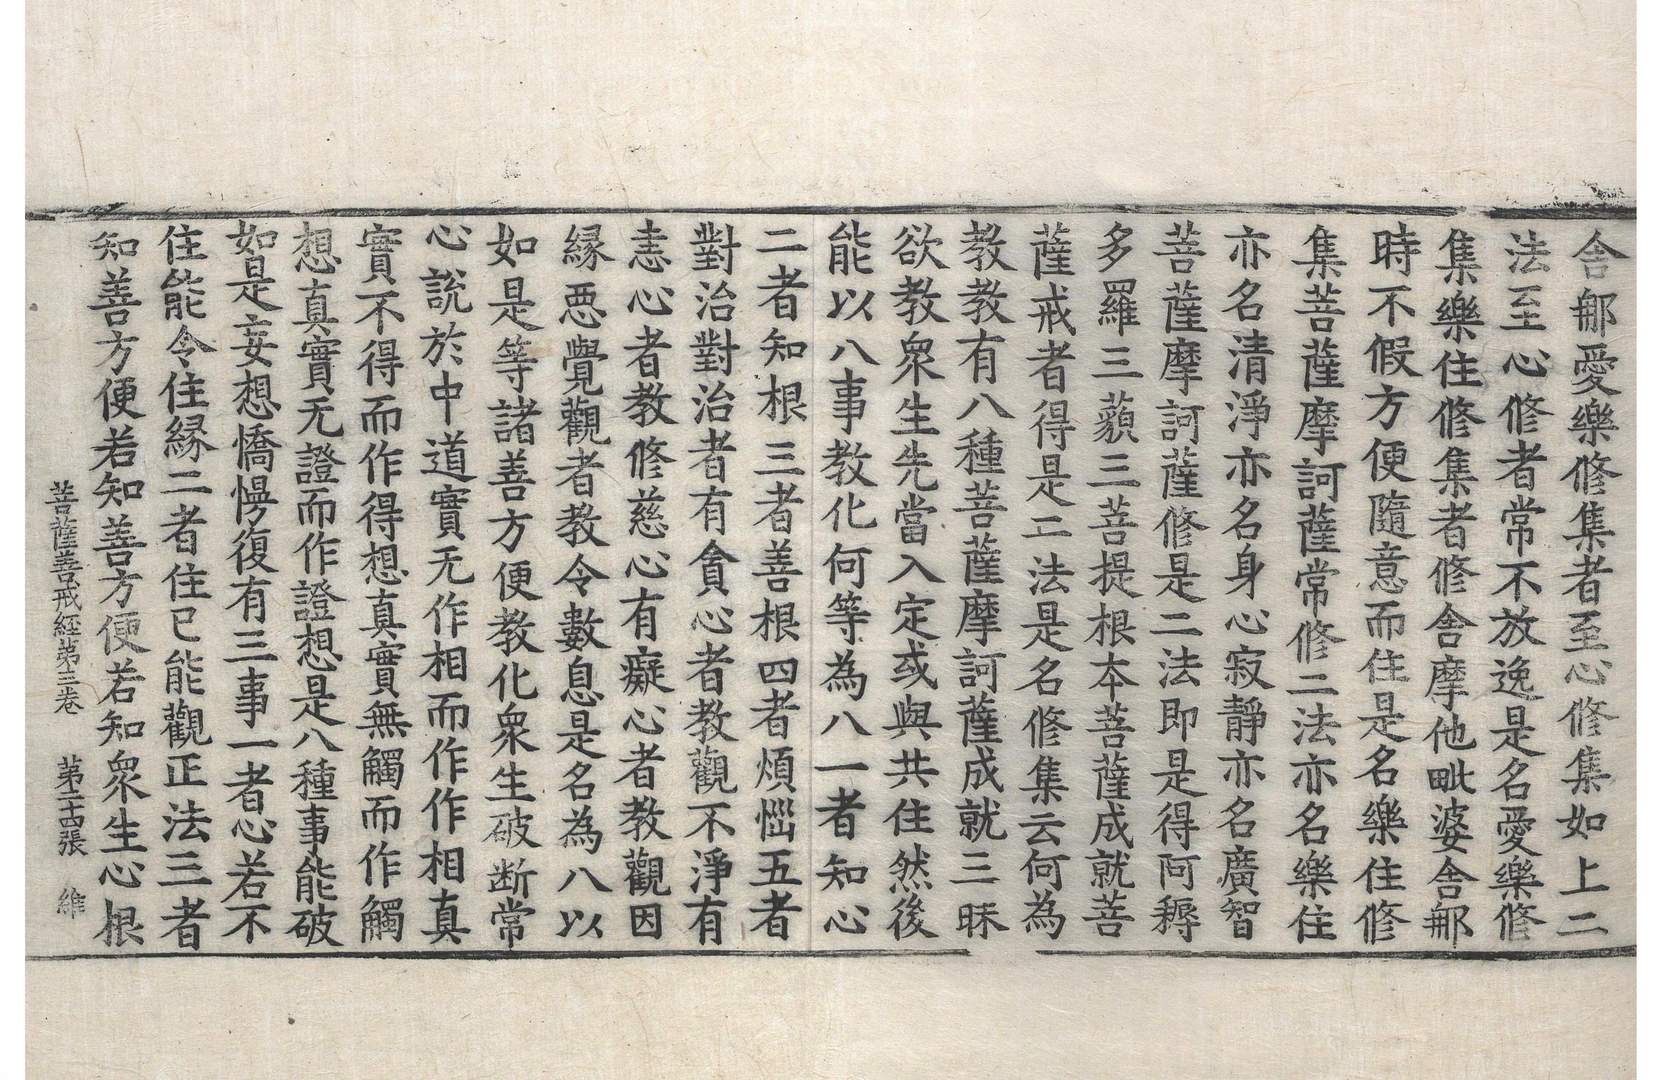 舍那愛樂修集者至心修集如上二
法至心修者常不放逸是名愛樂修
集樂住修集者修舍摩他毗婆舍那
時不假方便隨意而住是名樂住修
集菩薩摩訶薩常修二法亦名樂住
亦名清淨亦名身心寂靜亦名廣智
菩薩摩訶薩修是二法即是得阿耨
多羅三藐三菩提根本菩薩成就菩
薩戒者得是二法是名修集云何為
教教有八種菩薩摩訶薩成就三昧
欲教眾生先當入定或與共住然後
能以八事教化何等為八一者知心
二者知根三者善根四者煩惱五者
對治對治者有貪心者教觀不淨有
恚心者教修慈心有癡心者教觀因
緣惡覺觀者教令數息是名為八以
如是等諸善方便教化眾生破斷常
心說於中道實无作相而作作相真
實不得而作得想真實無觸而作觸
想真實无證而作證想是八種事能破
如是妄想憍慢復有三事一者心若不
住能令住緣二者住已能觀正法三者
知善方便若知善方便若知眾生心根
菩薩善戒經第三卷 第二十四張 維